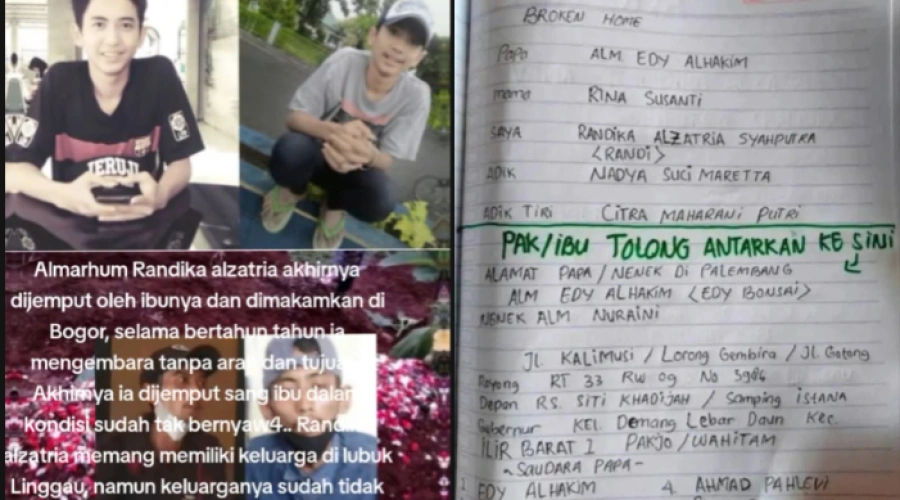 JERUJU
Almarhum Randika alzatria akhirnya
dijemput oleh ibunya dan dimakamkan di
Bogor, selama bertahun tahun ia
mengembara tanpa arah dan tujuan
Akhirnya ia dijemput sang ibu dalam
kondisi sudah tak bernyaw4.. Randika
alzatria memang memiliki keluarga di lubuk
Linggau, namun keluarganya sudah tidak
BROKEN HOME
Papa ALM EDY ALHAKIM
mama RINA SUSANTI
SAYA RANDIKA ALZATRIA SYAHPUTRA
<RANDI>
ADIK NADYA SUCI MARETTA
ADIK TIRI CITRA MAHARANI PUTRI
PAK/IBU TOLONG ANTARKAN KE SINI
ALAMAT PAPA / NENEK DI PALEMBANG
ALM EDY ALHAKIM <EDY BONSAI>
NENEK ALM NURAINI
JL. KALIMUSI / Lorong Gembira / JL. Gotong
Royong RT 33 RW 09 No 3986
Depan RS. SITI KHADIJAH / Samping ISTANA
Gubernur KEL. Demang Lebar Daun Kec.
ILIR BARAT 1 PAKJO / WAHITAM
~SAUDARA PAPA~
1 EDY ALHAKIM 4. AHMAD PAHLEVI